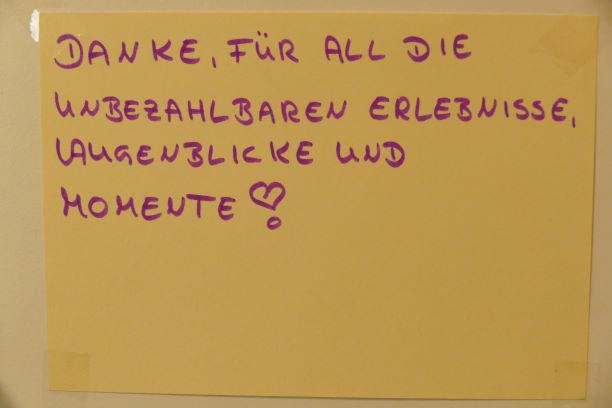 DANKE, FÜR ALL DIE
UNBEZAHLBAREN ERLEBNISSE,
AUGENBLICKE UND
MOMENTE!